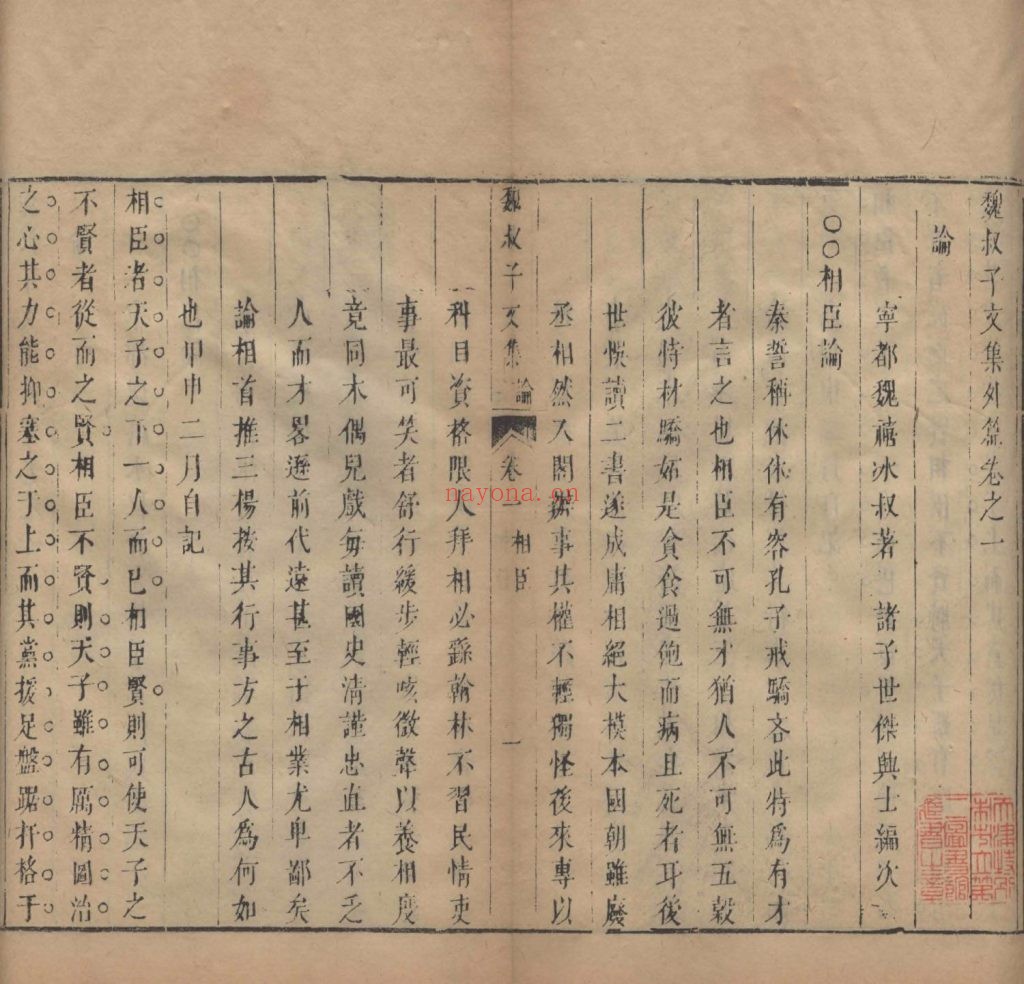 魏叔子文集外篇卷之一
論
寧都魏禧冰叔著 諸子世傑興士編次
〇〇相臣論
秦誓稱休休有容孔子戒驕吝此特爲有才
者言之也相臣不可無才猶人不可無五穀
彼恃材驕妬是貪食過飽而病且死者耳後
世悞讀二書遂成庸相絕大模本國朝雖廢
丞相然入閣辦事其權不輕獨怪後來專以
魏叔子文集 論 卷一 相臣 一
科目資格限人拜相必繇翰林不習民情吏
事最可笑者舒行緩步輕咳微聲以養相度
竟同木偶兒戲每讀國史清謹忠直者不乏
人而才畧遜前代遠甚至于相業尤卑鄙矣
論相首推三楊按其行事方之古人爲何如
也甲申二月自記
相臣者天子之下一人而已相臣賢則可使天子之
不賢者從而之賢相臣不賢則天子雖有厲精圖治
之心其力能抑塞之于上而其黨援足盤踞扞格于
nayona.cn